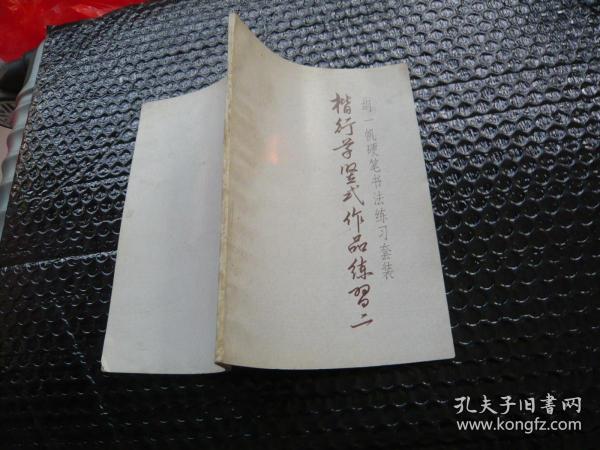 胡一帆硬笔书法练习套装
楷行草竖式作品练習二
孔夫子旧書网
www.kongfz.com